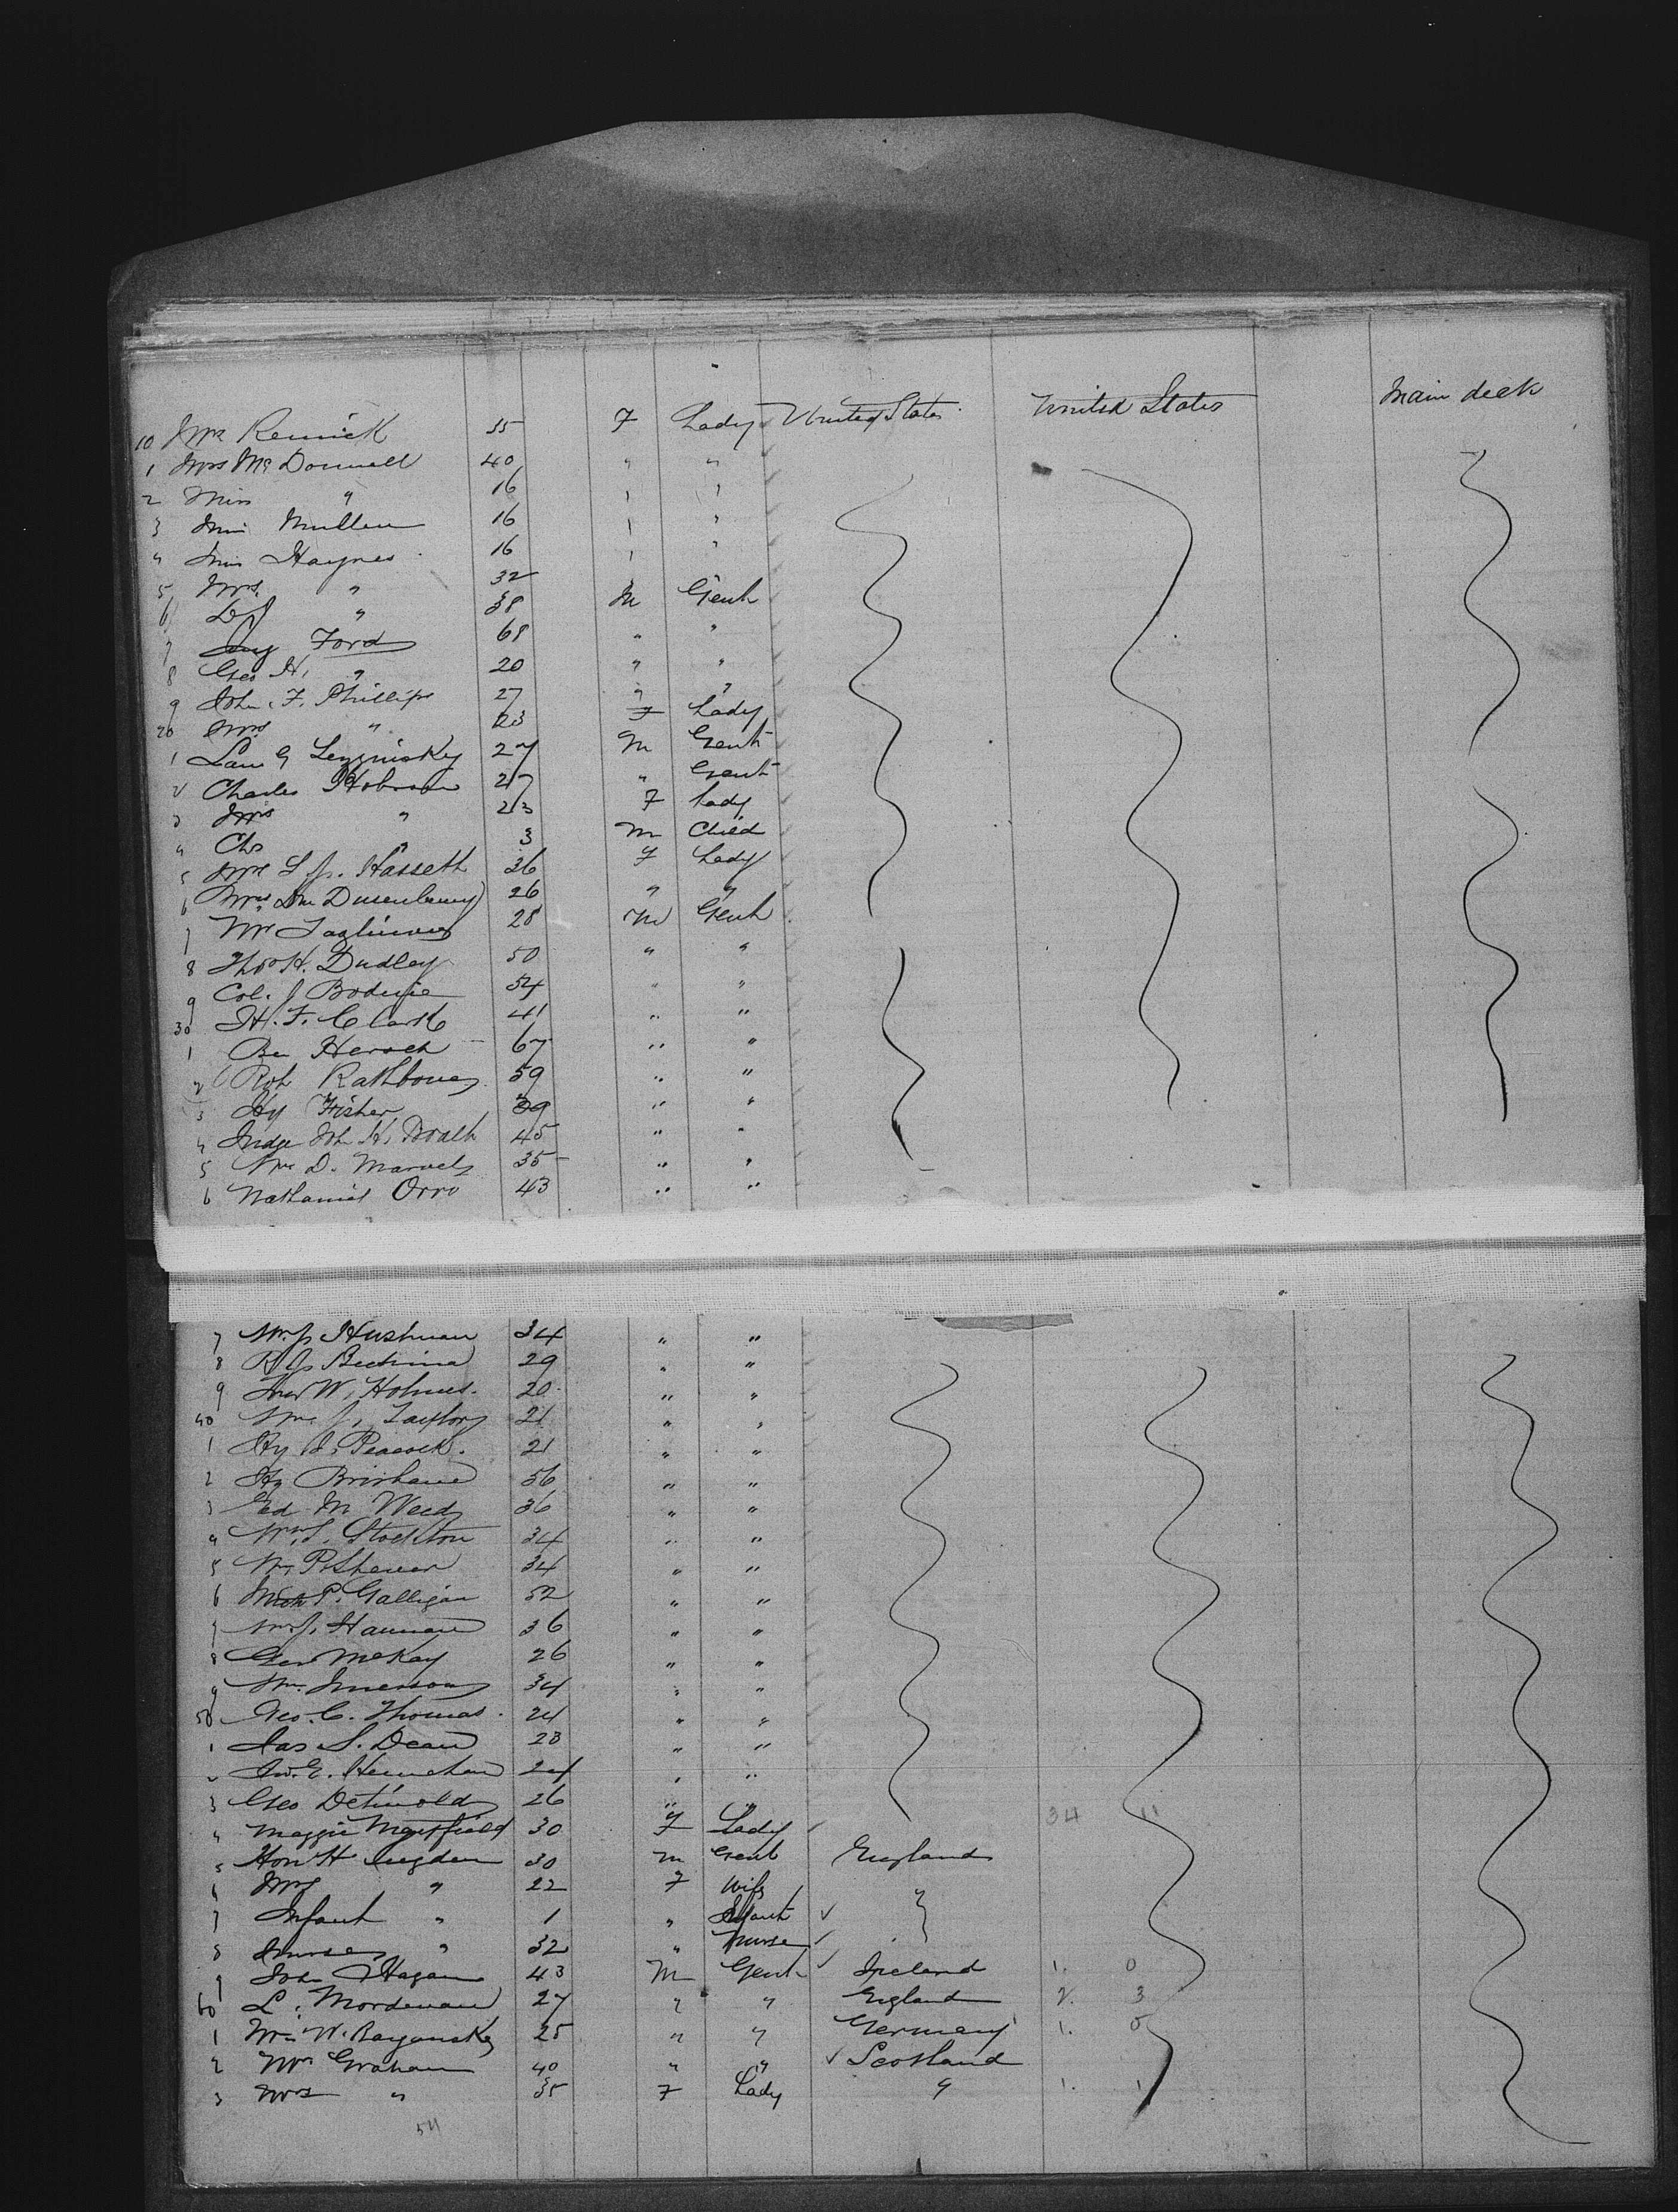 10 Mrs Remick 35 F Lady United States United States Main deck
1 Mrs McDonnell 40 " "
2 Miss " 16 " "
3 Miss Mullen 16 " "
4 Miss Haynes 16 " "
5 Mrs. " 32
6 " 38 M Gent
7 Ford 68 " "
8 Geo H. " 20 " "
9 John F. Phillips 27 " "
20 Mrs " 23 F Lady
1 27 M Gent
2 Charles Hobson 27 " Gent
3 Mrs " 23 F Lady
4 Chs " 3 M Child
5 Mrs L J. Hassett 36 F Lady
6 Mrs Dusenbury 26 " "
7 Mr 28 M Gent
8 Thos H. Dudley 50 " "
9 Col. J Bodine 54 " "
30 H. F. Clark 41 " "
1 Ben Hersch 67 " "
2 Rob Rathbone 59 " "
3 Hy Fisher 39 " "
4 Judge Jno H. Boalt 45 " "
5 Wm D. Marvel 35 " "
6 Nathaniel Orr 43 " "
7 Wm J. Hushman 34 " "
8 29 " "
9 W. Holmes. 20 " "
40 Wm J. Taylor 21 " "
1 Hy J. Peacock. 21 " "
2 Hy Brisbane 56 " "
3 Ed M Weed 36 " "
4 Wm S. Stockton 34 " "
5 Wm P. 34 " "
6 P. Galligan 52 " "
7 Wm J. Hannan 36 " "
8 Geo McKay 26 " "
9 Wm. 34 " "
50 Geo. C. Thomas. 24 " "
1 Jas S. Dean 23 " "
2 24 " "
3 Geo Detwold 26 " "
4 Maggie Mayfield 30 F Lady 34 11
5 Hon H 30 M Gent England
6 Mrs " 22 F Wife "
7 Infant " 1 " Infant "
8 Nurse " 32 " Nurse "
9 John Hagan 43 M Gent Ireland 1. 0
60 L. 27 " " England 2. 3
1 W. 25 " " Germany 1. 0
2 Mr Graham 40 " " Scotland
3 Mrs " 35 F Lady " 1. 1
54